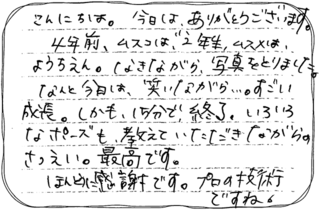 こんにちは。今日は、ありがとうございます。
4年前、ムスコは、2年生、ムスメは、
ようちえん。なきながら、写真をとりました。
なんと今日は、笑いながら…。すごい
成長。しかも、15分で、終了。いろいろ
なポーズも、教えていただきながらの
さつえい。最高です。
ほんとに感謝です。プロの技術
ですね。